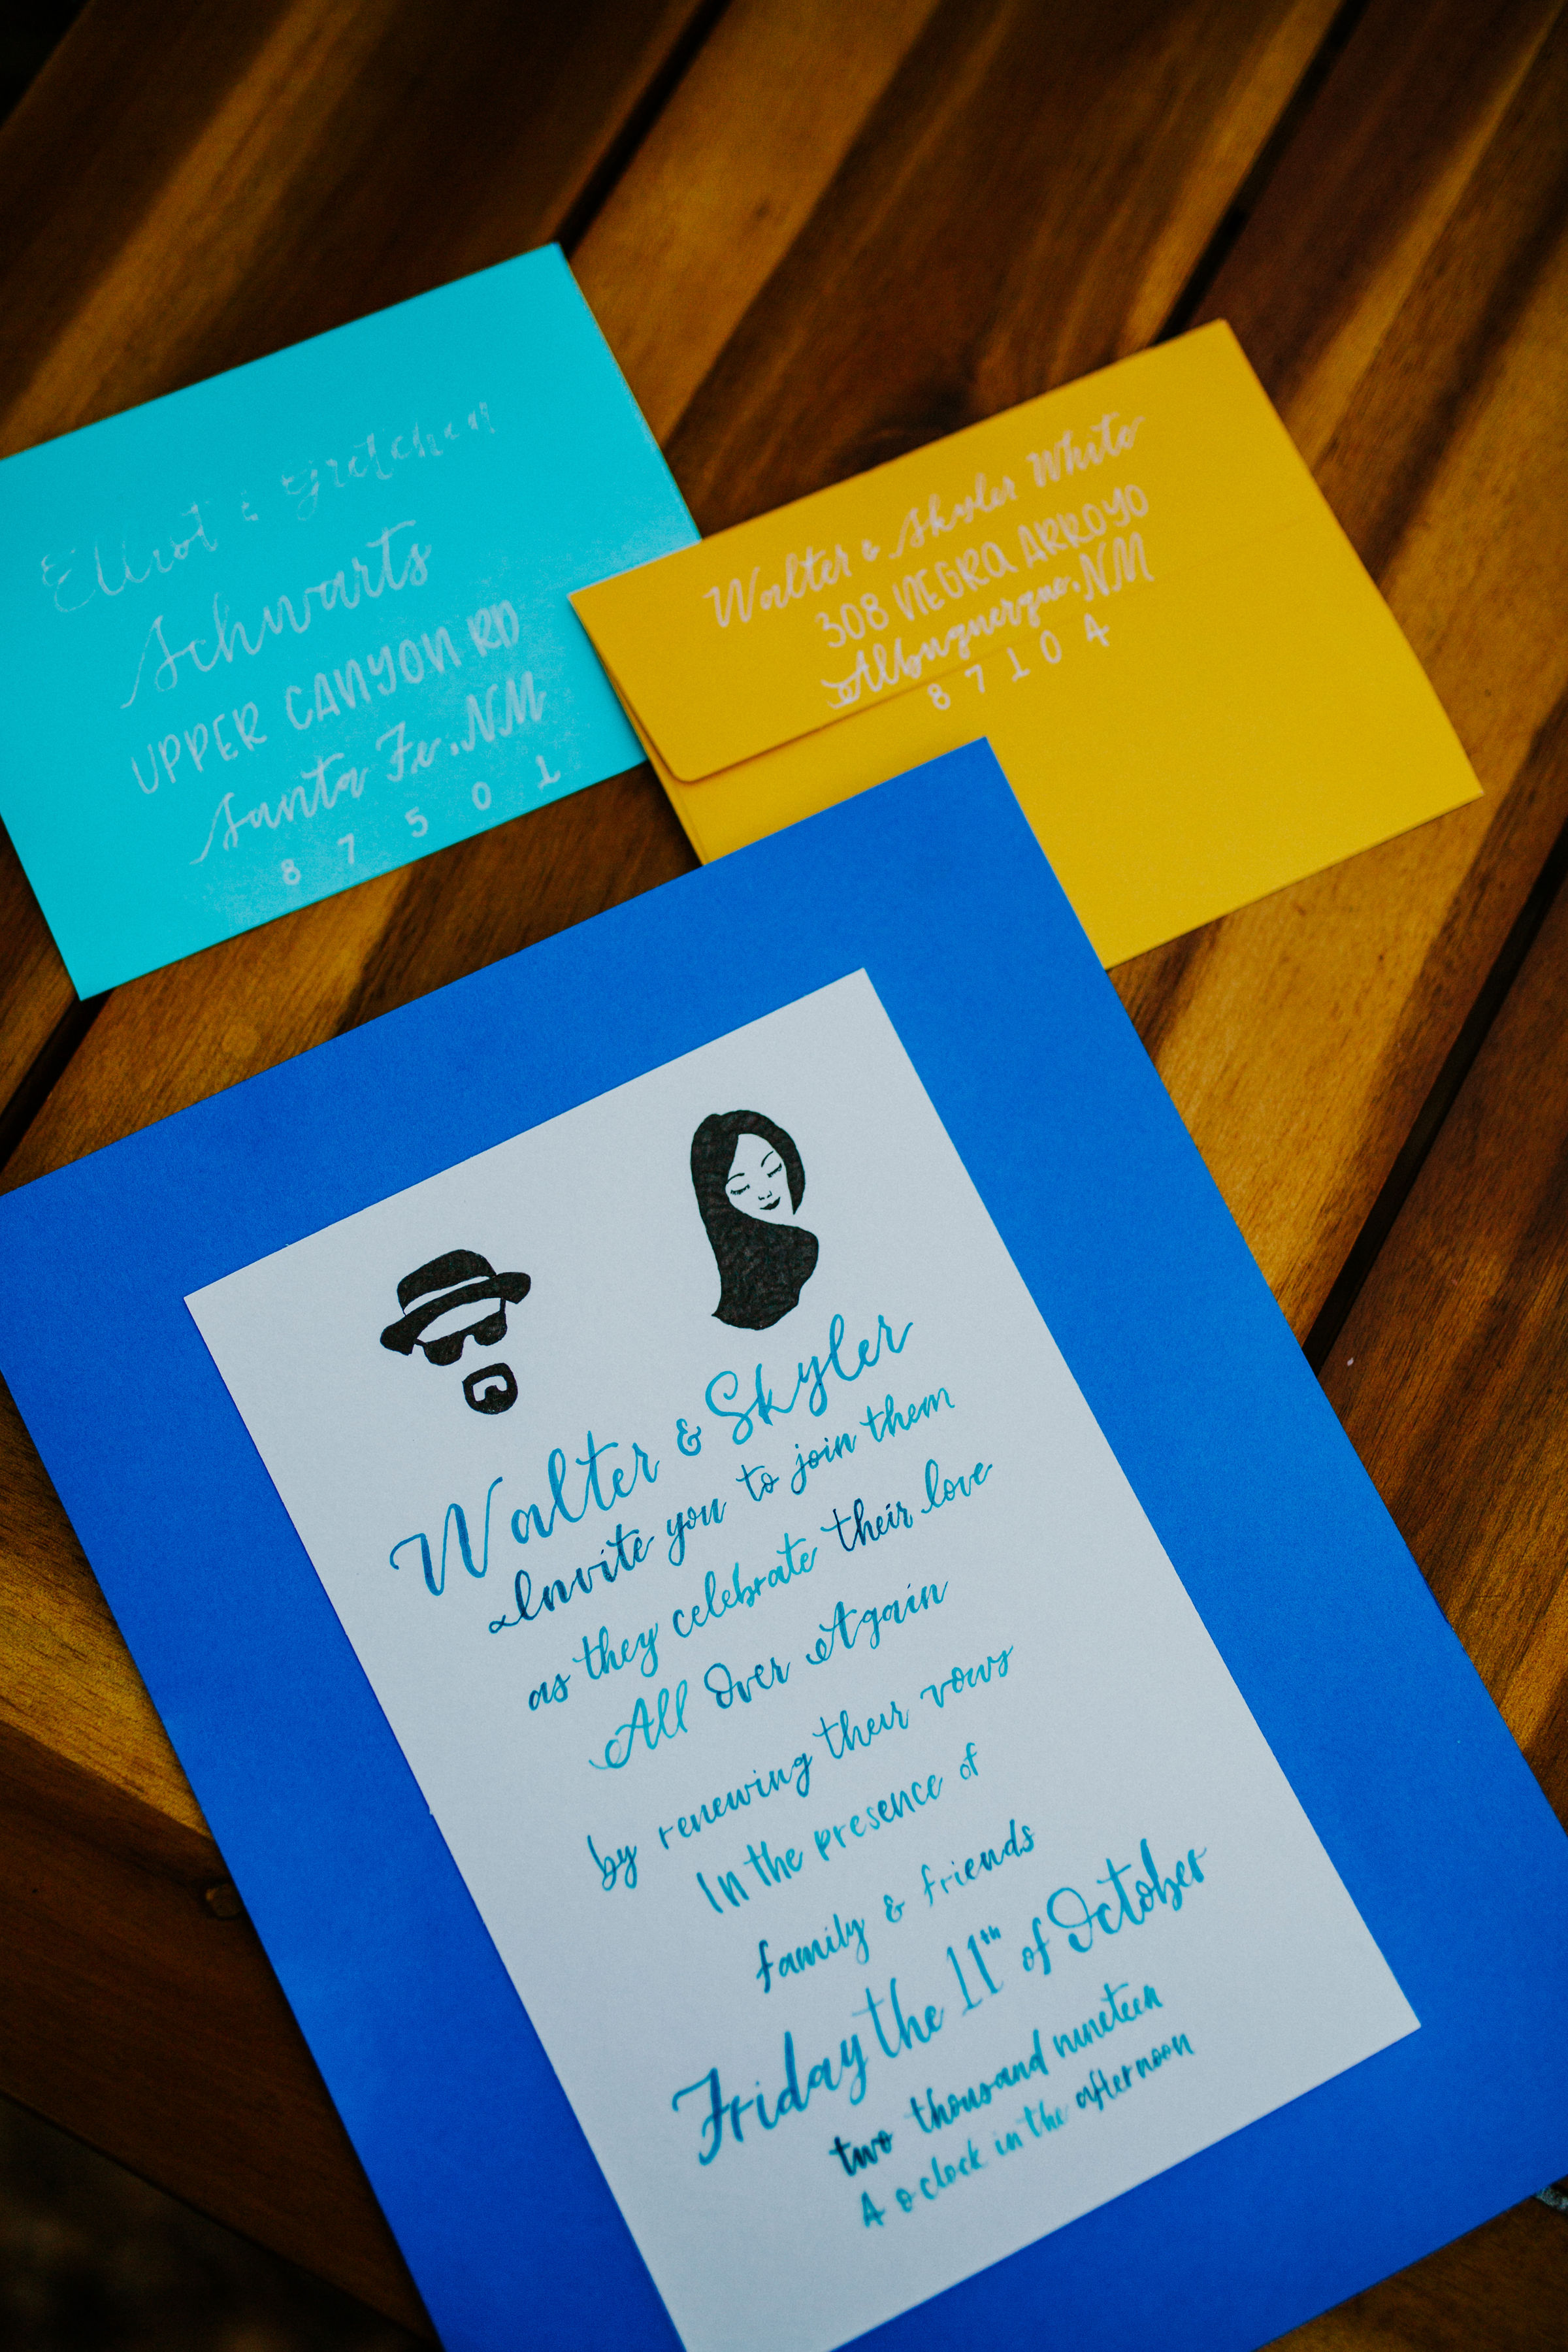 Elliot & Gretchen
Schwarts
UPPER CANYON RD
Santa Fe, NM
87501
Walter & Skyler White
308 NEGRA ARROYO
Albuquerque, NM
87104
Walter & Skyler
Invite you to join them
as they celebrate their love
All Over Again
by renewing their vows
In the presence of
family & friends
Friday the 11th of October
two thousand nineteen
4 o clock in the afternoon